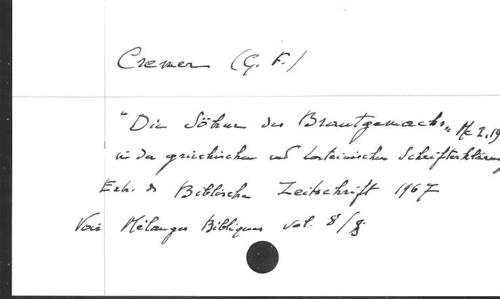 Cremer (G. F.)
"Die Söhne des Brautgemachs" Mc 2,19
in der griechischen und lateinischen Schrifterklärung
Extr. de Biblische Zeitschrift 1967
Voir Mélanges Bibliques vol. 8/